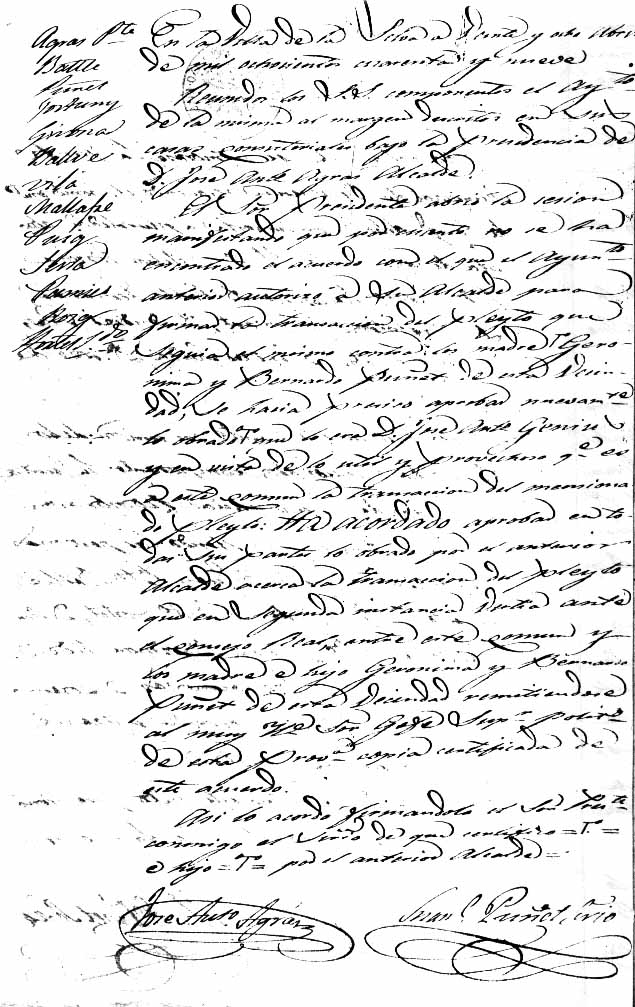 Agras Pte
Batlle
Fortuny
Girona
Vila
Mallafré
Puig
Roig
En la Villa de la Selva a veinte y ocho Abril
de mil ochocientos cuarenta y nueve
Reunidos los S.S. componentes el Aytto
de la misma al margen descritos en sus
casas consistoriales bajo la Presidencia de
D. José Anto Agras Alcalde.
El Sor Presidente abrio la sesion
manifestando que por cuanto no se ha
encontrado el acuerdo con el que el Ayunto
anterior autorizó a su Alcalde para
firmar la transaccion del pleyto que
seguia el mismo contra los madre T Gero-
nima y Bernardo Puñet de esta Vecin-
dad, se hacia preciso aprobar nuevamte
lo obrado T que lo era D. José Anto
y en vista de lo util y provechoso qe es
a este comun la transaccion del menciona
do pleyto: Ha acordado aprobar en to
das sus partes lo obrado por el anterior
Alcalde acerca la transaccion del pleyto
que en segunda instancia ante
el consejo Real, entre este comun y
los madre e hijo Geronima y Bernardo
Puñet de esta Vecindad remitiendose
al muy Ylte Sor Gefe Supr politco
de esta Prova copia certificada de
este acuerdo.
Asi lo acordó firmandolo el Sor Preste
conmigo el Srio de que certifico = T. =
e hijo = T = por el anterior Alcalde =
José Anto Agrás
Juan Puñet, Srio